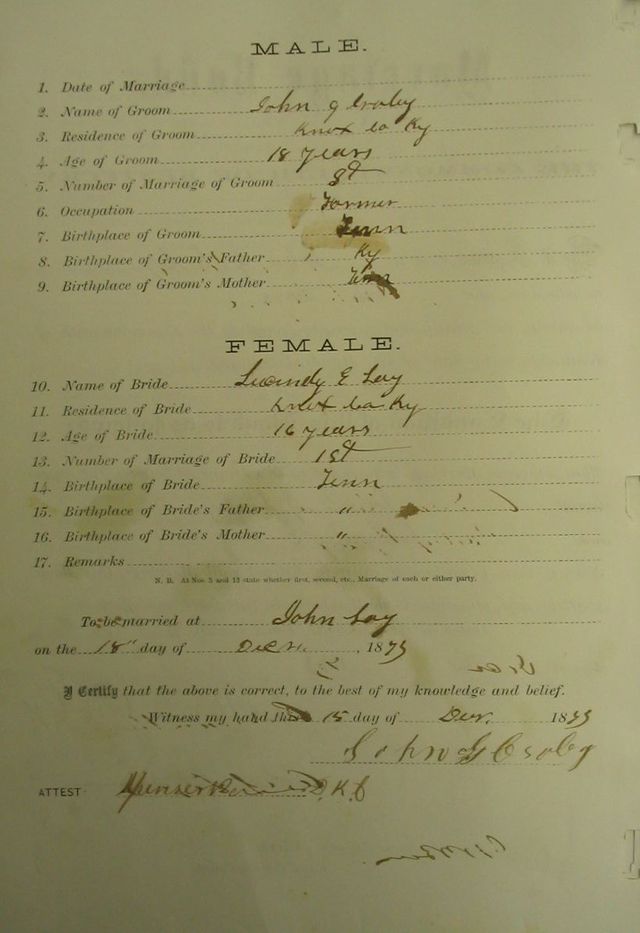 MALE.
1. Date of Marriage
2. Name of Groom John G Croley
3. Residence of Groom Knox Co Ky
4. Age of Groom 18 years
5. Number of Marriage of Groom
6. Occupation Farmer
7. Birthplace of Groom Tenn
8. Birthplace of Groom's Father Ky
9. Birthplace of Groom's Mother Tenn
FEMALE.
10. Name of Bride E Lay
11. Residence of Bride Knox Co Ky
12. Age of Bride 16 years
13. Number of Marriage of Bride 1st
14. Birthplace of Bride Tenn
15. Birthplace of Bride's Father "
16. Birthplace of Bride's Mother "
17. Remarks
N. B. At Nos. 5 and 13 state whether first, second, etc., Marriage of each or either party.
To be married at John Lay
on the 18" day of Decr, 1879
I Certify that the above is correct, to the best of my knowledge and belief.
Witness my hand this 15 day of Decr. 1879
John G Croley
ATTEST D.K.C